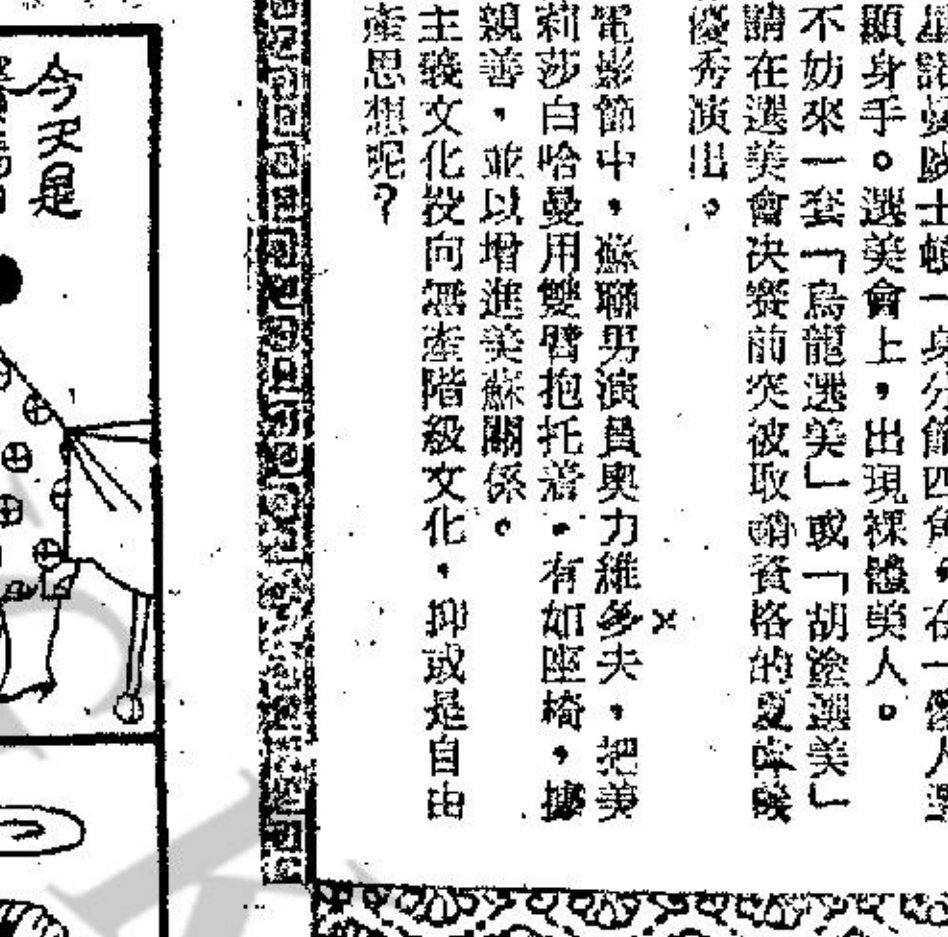 一身分飾四角，在一
顯身手。選美會上，出現裸體美人。
不妨來一套「烏龍選美」或「胡塗選美」
請在選美會決賽前突被取消資格的
優秀演出。
×
電影節中，蘇聯男演員奧力維多夫，把美
莉莎白哈曼用雙臂抱托着，有如座椅，據
親善，並以增進美蘇關係。
主義文化投向無產階級文化，抑或是自由
產思想呢？
今天是